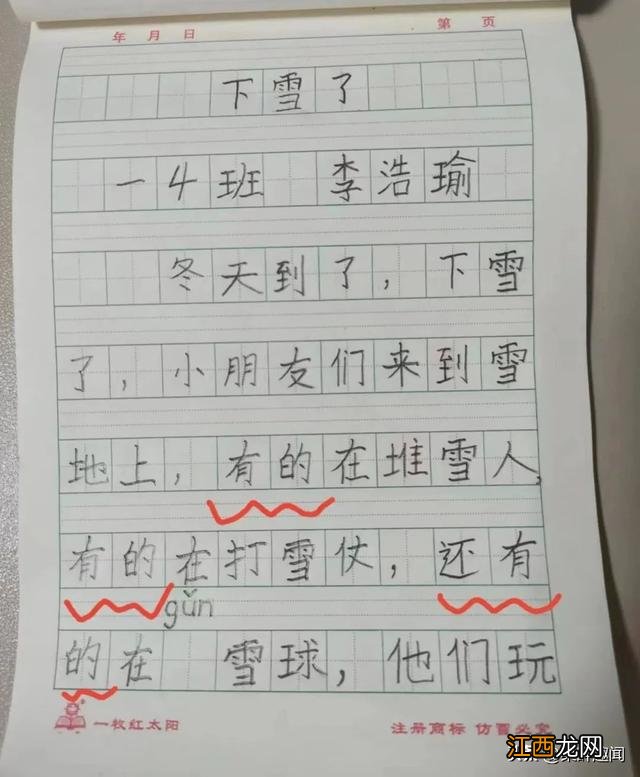 年 月 日 第 页
下雪了
一4班 李浩瑜
冬天到了，下雪
了，小朋友们来到雪
地上，有的在堆雪人，
有的在打雪仗，还有
gǔn
的在 雪球，他们玩
一枚红太阳 注册商标 仿冒必究
江西龙网